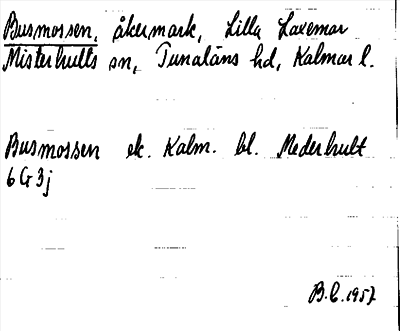 Busmossen, åkermark, Lilla Laxemar
Misterhults sn, Tunaläns hd, Kalmar l.
Busmossen ek. Kalm. bl. Mederhult
6 G 3j
B.C. 1957